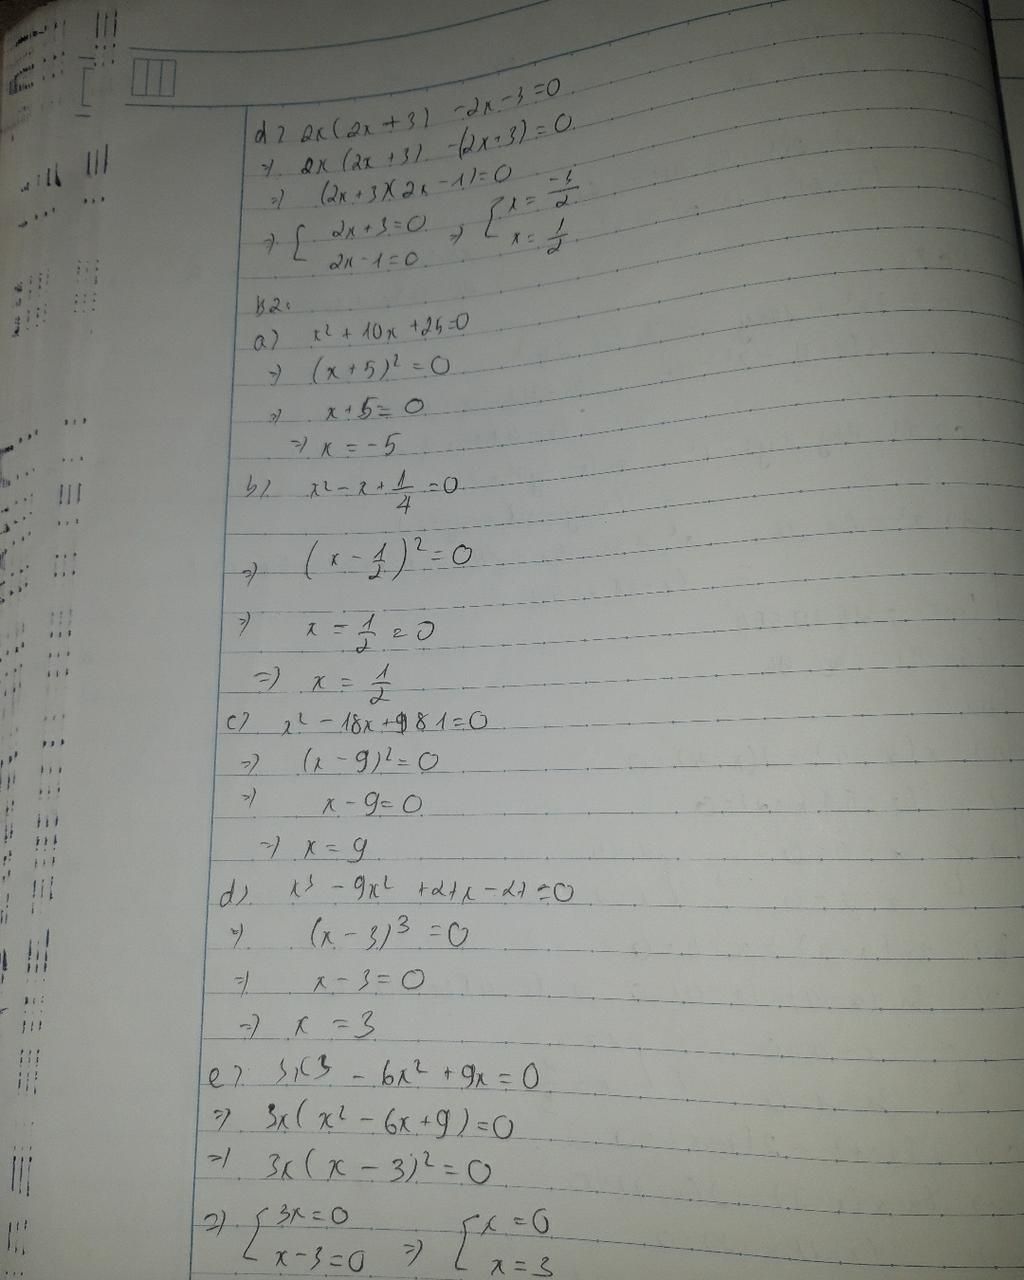 d) 2x(2x+3) -2x-3=0
=) 2x(2x+3) -(2x+3)=0
=) (2x+3)(2x-1)=0
=) [ 2x+3=0 =) [ x= -3/2
2x-1=0 x= 1/2
B2:
a) x² + 10x + 25=0
=) (x+5)² = 0
=) x+5= 0
=) x = -5
b) x² - x + 1/4 = 0
=) (x - 1/2)² = 0
=) x = 1/2 = 0
=) x = 1/2
c) x² - 18x + 81=0
=) (x - 9)² = 0
=) x - 9= 0
=) x = 9
d) x³ - 9x² + 27x - 27 = 0
=) (x - 3)³ = 0
=) x - 3= 0
=) x = 3
e) 3x3 - 6x² + 9x = 0
=) 3x( x² - 6x + 9) = 0
=) 3x( x - 3)² = 0
=) [ 3x=0 =) [ x = 0
x-3=0 x = 3